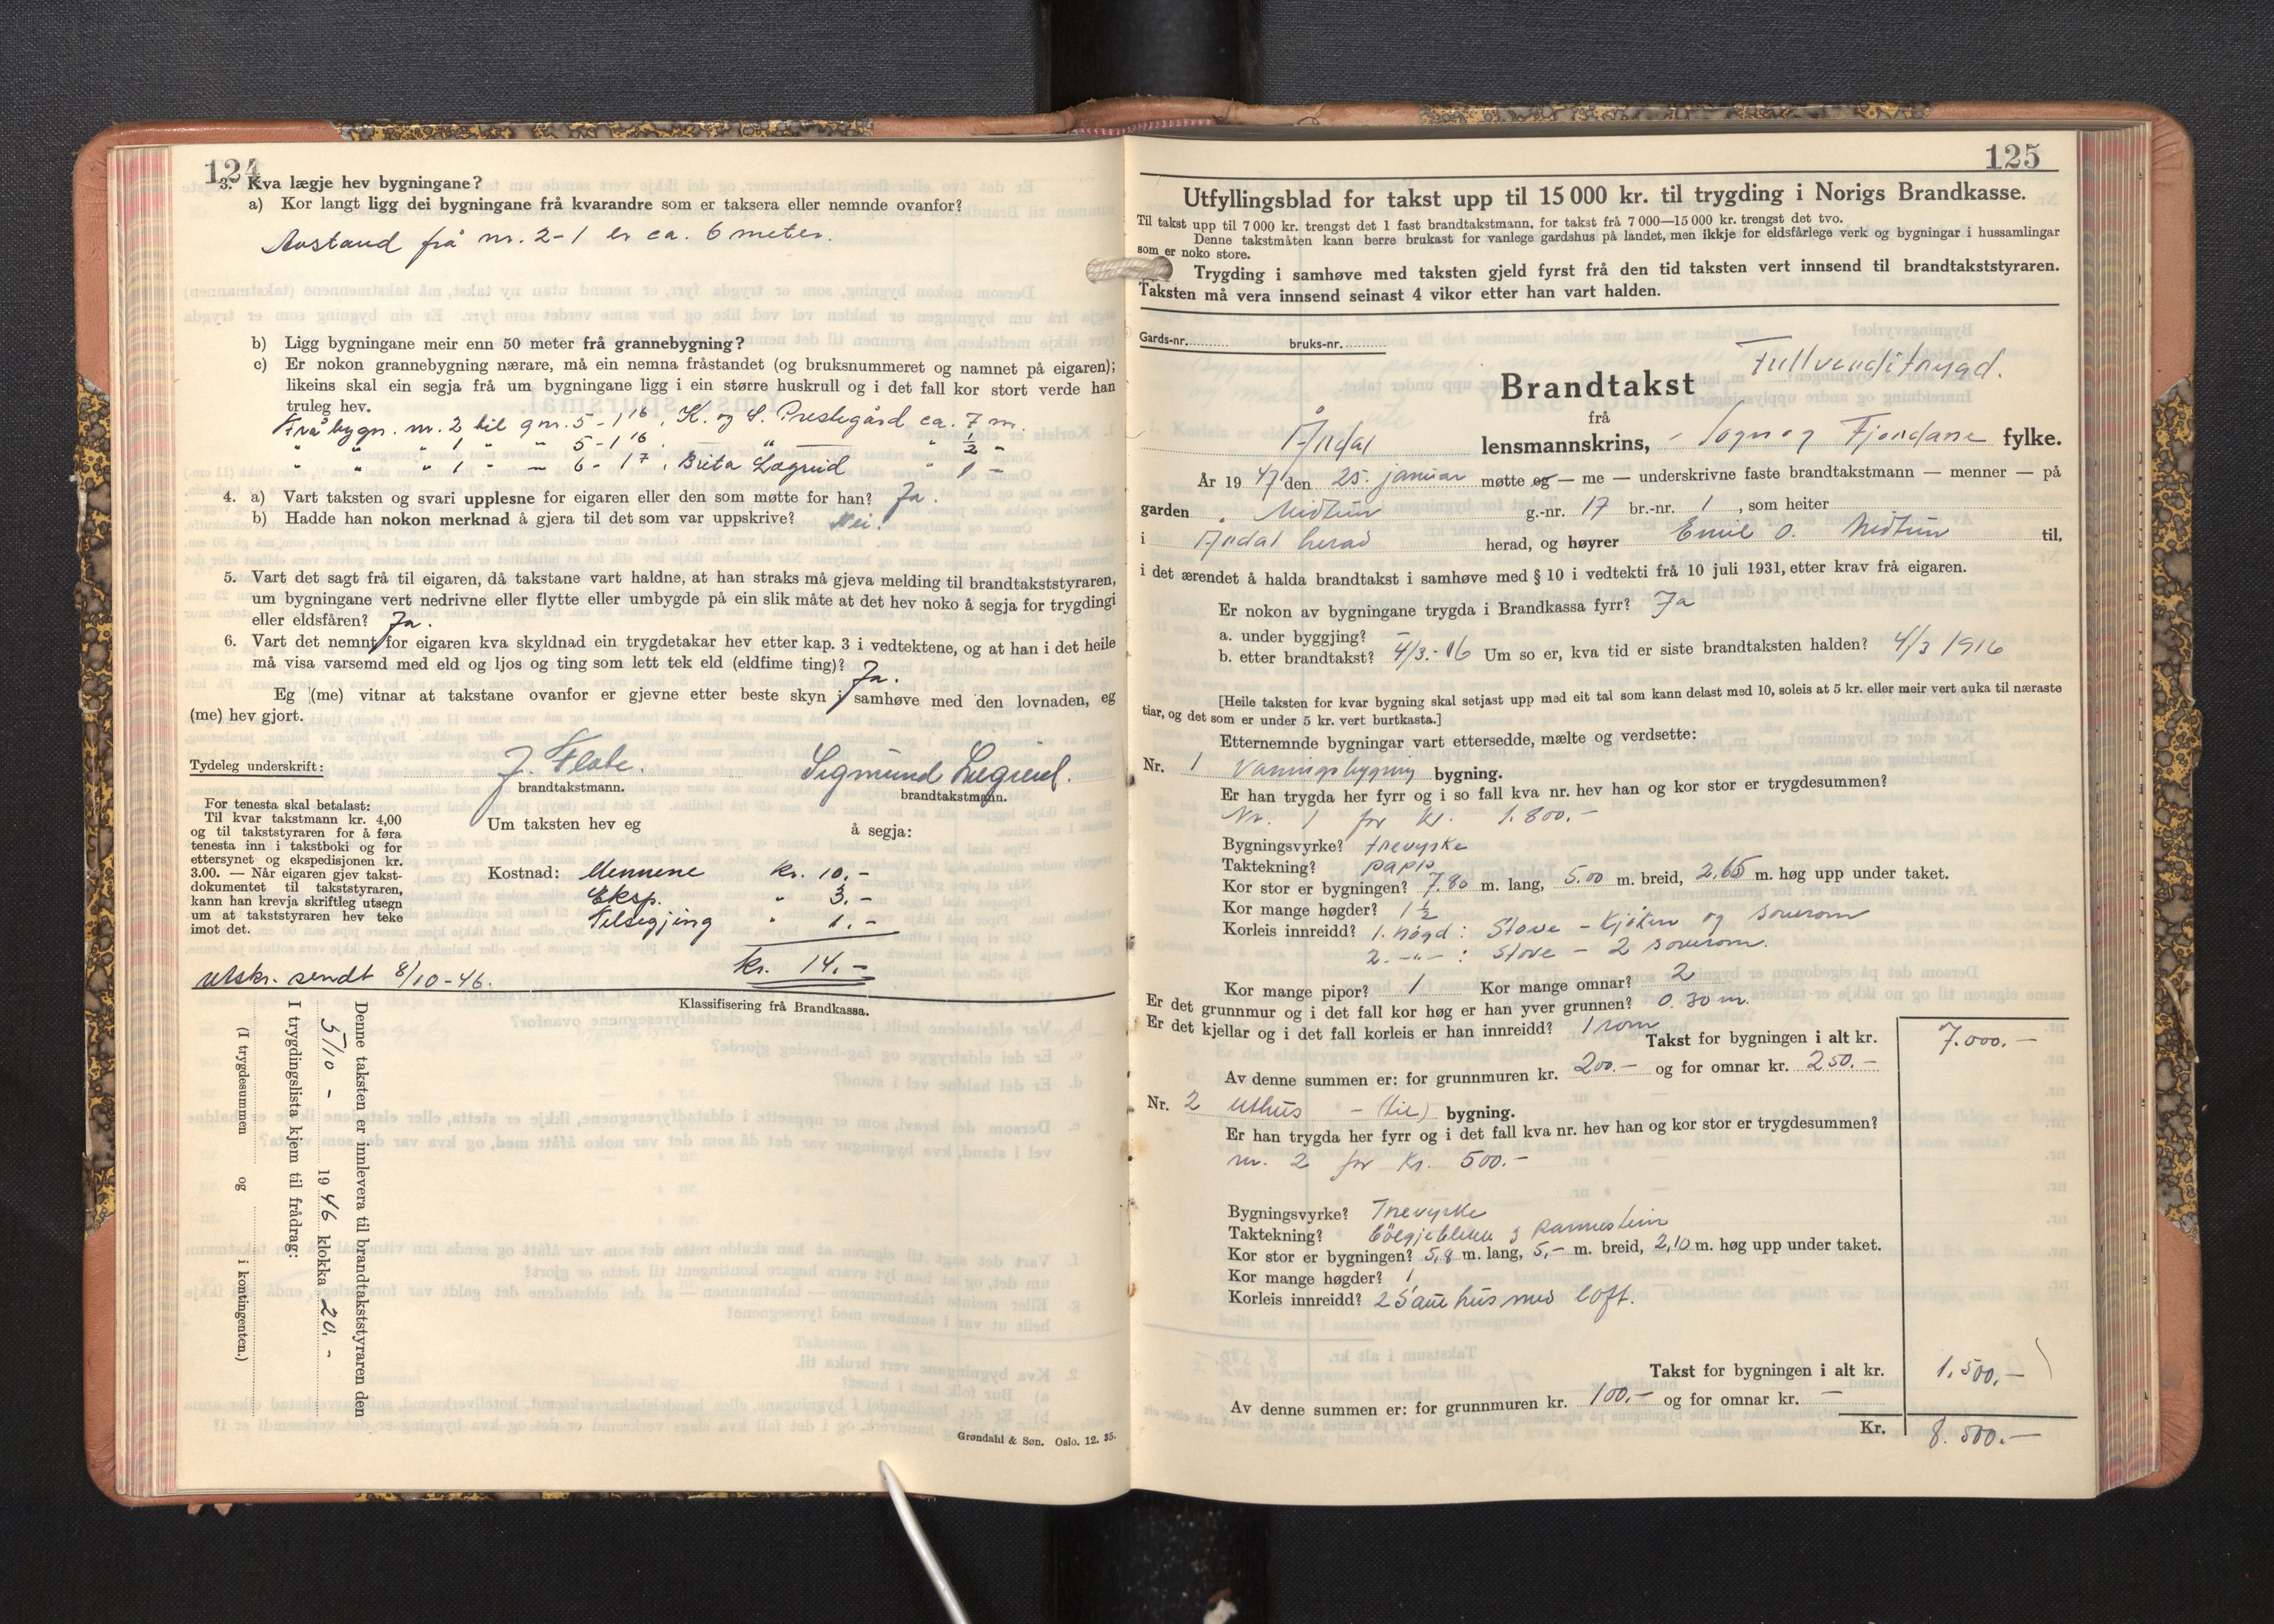 124
3. Kva lægje hev bygningane?
a) Kor langt ligg dei bygningane frå kvarandre som er taksera eller nemnde ovanfor?
Avstand frå nr. 2-1 er ca. 6 meter.
b) Ligg bygningane meir enn 50 meter frå grannebygning?
c) Er nokon grannebygning nærare, må ein nemna fråstandet (og bruksnummeret og namnet på eigaren);
likeins skal ein segja frå um bygningane ligg i ein større huskrull og i det fall kor stort verde han
truleg hev.
Frå bygn. nr. 2 til gnr. 5-1 16, K. og S. Prestegård ca. 7 m.
" " " 1 " " 5-1 16, — " — " ½ "
" " " 1 " — 6-17, Brita Lægreid " 1 "
4. a) Vart taksten og svari upplesne for eigaren eller den som møtte for han? Ja.
b) Hadde han nokon merknad å gjera til det som var uppskrive? Nei.
5. Vart det sagt frå til eigaren, då takstane vart haldne, at han straks må gjeva melding til brandtakststyraren,
um bygningane vert nedrivne eller flytte eller umbygde på ein slik måte at det hev noko å segja for trygdingi
eller eldsfåren? Ja.
6. Vart det nemnt for eigaren kva skyldnad ein trygdetakar hev etter kap. 3 i vedtektene, og at han i det heile
må visa varsemd med eld og ljos og ting som lett tek eld (eldfime ting)? Ja.
Eg (me) vitnar at takstane ovanfor er gjevne etter beste skyn i samhøve med den lovnaden, eg
(me) hev gjort.
Tydeleg underskrift: J. Flate. Sigmund Lægreid.
brandtakstmann. brandtakstmann.
For tenesta skal betalast:
Til kvar takstmann kr. 4,00
og til takststyraren for å føra
tenesta inn i takstboki og for
ettersynet og ekspedisjonen kr.
3.00. — Når eigaren gjev takst-
dokumentet til takststyraren,
kann han krevja skriftleg utsegn
um at takststyraren hev teke
imot det.
Um taksten hev eg å segja:
Kostnad: Mennene kr. 10.-
Eksp. " 3.-
Tilsegjing " 1.-
kr. 14.-
Utskr. sendt 8/10-46.
Klassifisering frå Brandkassa.
Denne taksten er innlevera til brandtakststyraren den
5/10 - 1946 klokka 20.-
I trygdingslista kjem til frådrag:
(I trygdesummen og i kontingenten.)
Grøndahl & Søn. Oslo. 12. 35.
125
Utfyllingsblad for takst upp til 15 000 kr. til trygding i Norigs Brandkasse.
Til takst upp til 7 000 kr. trengst det 1 fast brandtakstmann, for takst frå 7 000—15 000 kr. trengst det tvo.
Denne takstmåten kann berre brukast for vanlege gardshus på landet, men ikkje for eldsfårlege verk og bygningar i hussamlingar
som er noko store.
Trygding i samhøve med taksten gjeld fyrst frå den tid taksten vert innsend til brandtakststyraren.
Taksten må vera innsend seinast 4 vikor etter han vart halden.
Gards-nr. bruks-nr.
Fullverditrygd.
Brandtakst
frå
Årdal lensmannskrins, - Sogn og Fjordane fylke.
År 1947 den 25. januar møtte eg — me — underskrivne faste brandtakstmann — menner — på
garden Midtun g.-nr. 17 br.-nr. 1, som heiter
i Årdal herad herad, og høyrer Emil O. Midtun til,
i det ærendet å halda brandtakst i samhøve med § 10 i vedtekti frå 10 juli 1931, etter krav frå eigaren.
Er nokon av bygningane trygda i Brandkassa fyrr? Ja
a. under byggjing? —
b. etter brandtakst? 4/3.-16 Um so er, kva tid er siste brandtaksten halden? 4/3 1916
[Heile taksten for kvar bygning skal setjast upp med eit tal som kann delast med 10, soleis at 5 kr. eller meir vert auka til næraste
tiar, og det som er under 5 kr. vert burtkasta.]
Etternemnde bygningar vart ettersedde, mælte og verdsette:
Nr. 1 Vaaningsbygning bygning.
Er han trygda her fyrr og i so fall kva nr. hev han og kor stor er trygdesummen?
Nr. 1 for kr. 1.800.-
Bygningsvyrke? Trevyrke
Taktekning? papp
Kor stor er bygningen? 7.80 m. lang, 5.00 m. breid, 2,65 m. høg upp under taket.
Kor mange høgder? 1½
Korleis innreidd? 1. høgd: Stove - kjøken og soverom
2. -"- : Stove - 2 soverom.
Kor mange pipor? 1 Kor mange omnar? 2
Er det grunnmur og i det fall kor høg er han yver grunnen? 0.30 m.
Er det kjellar og i det fall korleis er han innreidd? 1 rom
Takst for bygningen i alt kr. 7.000.-
Av denne summen er: for grunnmuren kr. 200.- og for omnar kr. 250.-
Nr. 2 Uthus - bygning.
Er han trygda her fyrr og i det fall kva nr. hev han og kor stor er trygdesummen?
nr. 2 for Kr. 500.-
Bygningsvyrke? Trevyrke
Taktekning? Bölgjeblekk
Kor stor er bygningen? 5,8 m. lang, 5,- m. breid, 2,10 m. høg upp under taket.
Kor mange høgder? 1
Korleis innreidd? 2 Sauehus med loft.
Takst for bygningen i alt kr. 1.500.-
Av denne summen er: for grunnmuren kr. 100.- og for omnar kr. —
Kr. 8.500.-